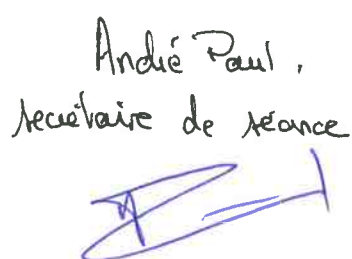 André Paul,
secrétaire de séance